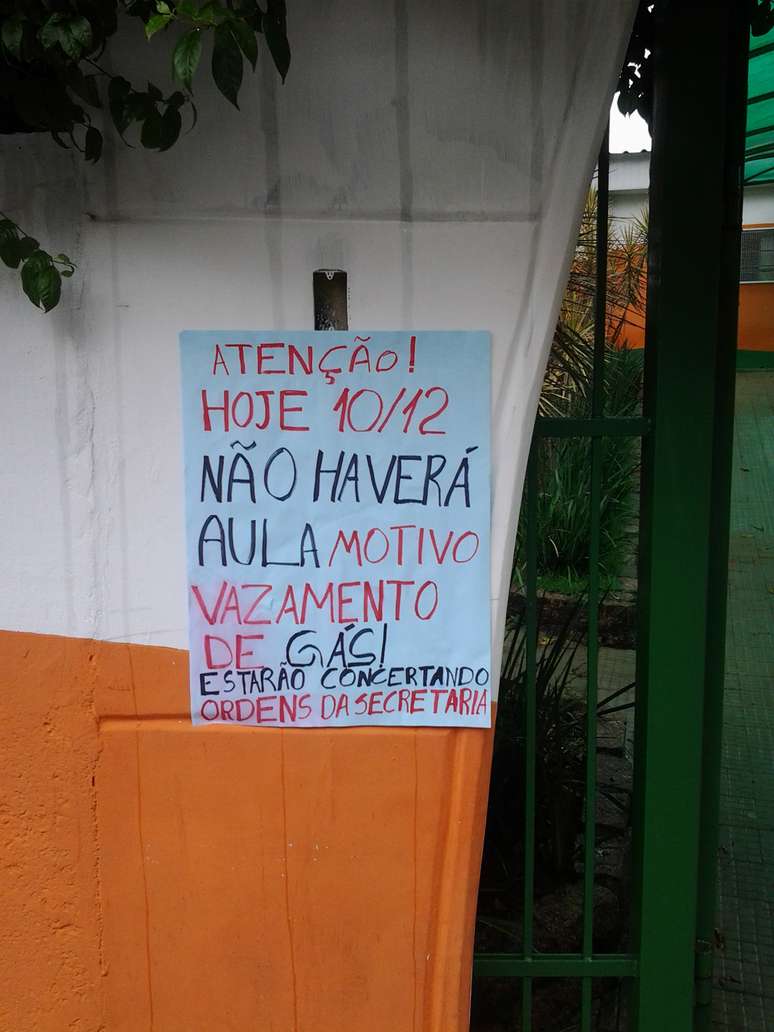 ATENÇÃO!
HOJE 10/12
NÃO HAVERÁ
AULA MOTIVO
VAZAMENTO
DE GÁS!
ESTARÃO CONCERTANDO
ORDENS DA SECRETARIA